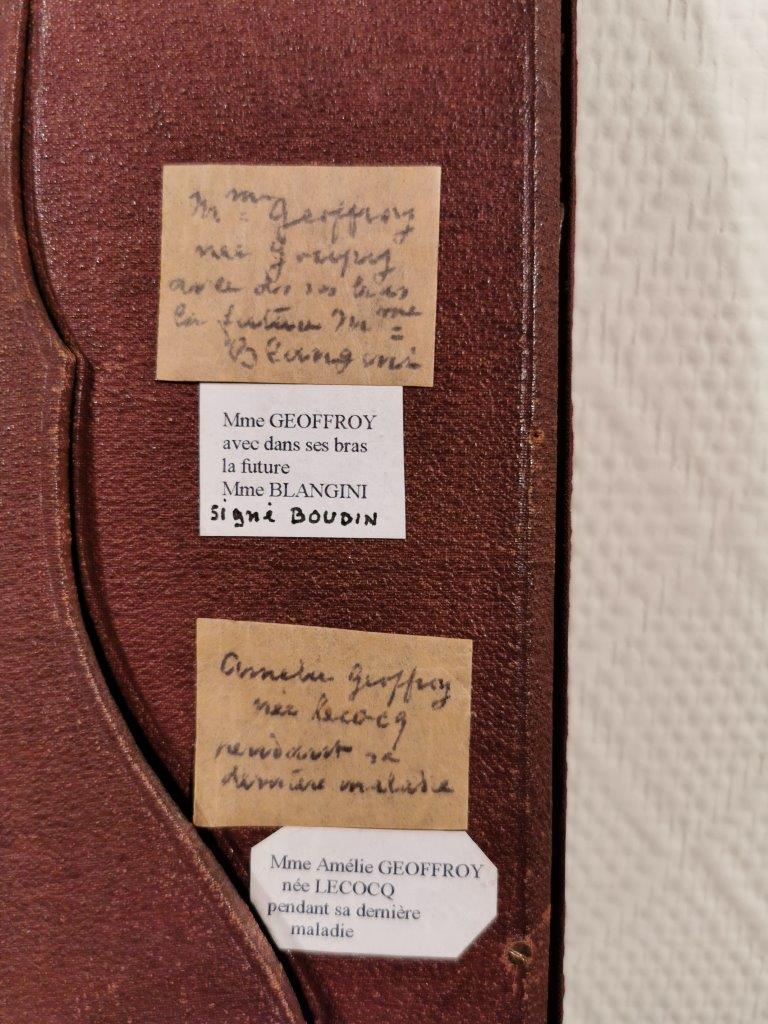 Mme Geoffroy
née Goupy
avec ds ses bras
la future Mme
Blangini
Mme GEOFFROY
avec dans ses bras
la future
Mme BLANGINI
signé BOUDIN
Amélie Geoffroy
née Lecocq
pendant sa
dernière maladie
Mme Amélie GEOFFROY
née LECOCQ
pendant sa dernière
maladie